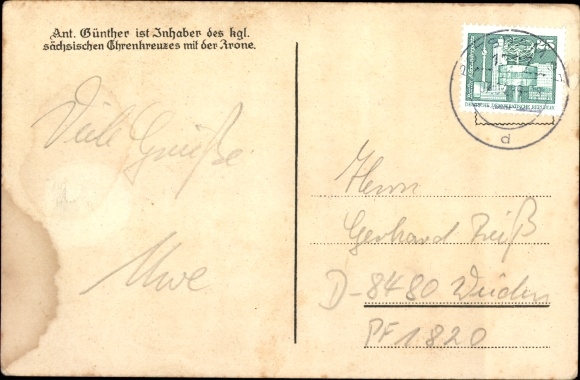 Ant. Günther ist Inhaber des kgl.
sächsischen Ehrenkreuzes mit der Krone.
Viele Grüße
Uwe
25
DEUTSCHE DEMOKRATISCHE REPUBLIK
d
Herrn
Gerhard Reiß
D-8480 Weiden
PF 1820